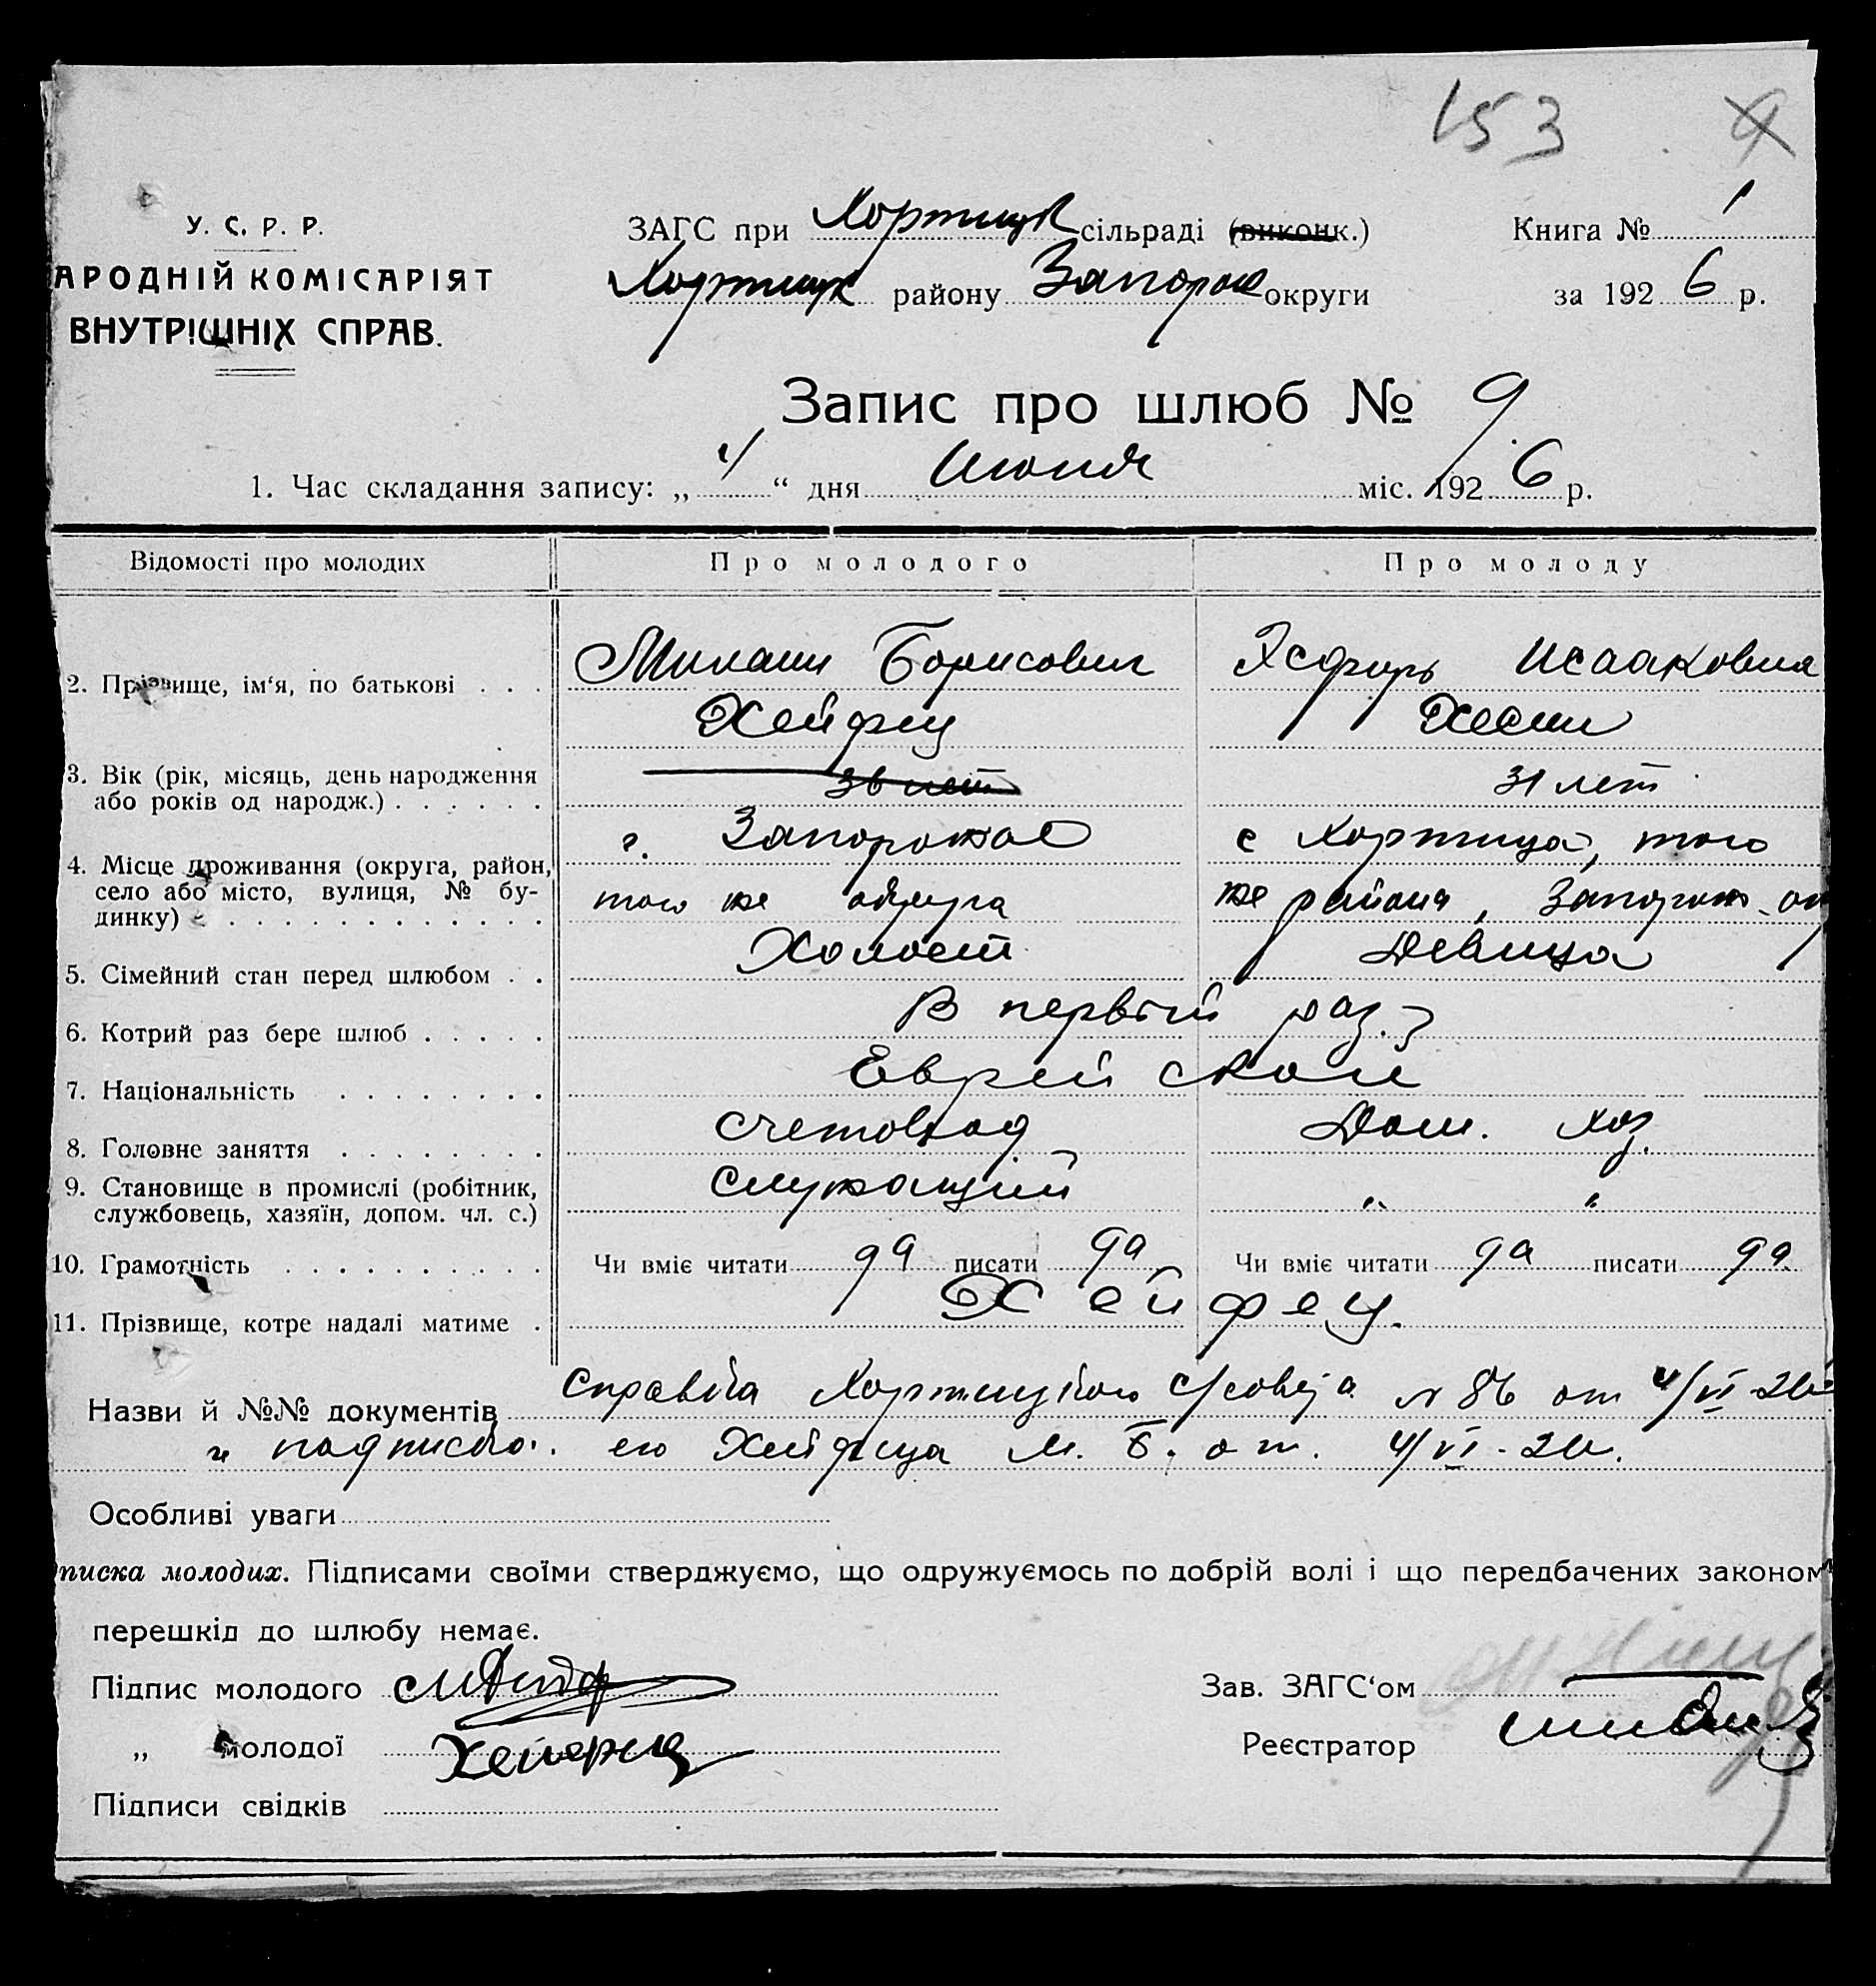 153 9
У. С. Р. Р.
АРОДНІЙ КОМІСАРІЯТ
ВНУТРІШНІХ СПРАВ.
ЗАГС при Хортицк сільраді (виконк.)
Хортицк району Запорож округи
Книга № 1
за 1926 р.
Запис про шлюб № 9
1. Час складання запису: „4“ дня Июня міс. 1926 р.
Відомості про молодих Про молодого Про молоду
2. Прізвище, ім‘я, по батькові . . . Борисович Исааковна
Хейфец
3. Вік (рік, місяць, день народження
або років од народж.) . . . . . . 36 лет 31 лет
4. Місце проживання (округа, район, г. Запорожье с Хортица, того
село або місто, вулиця, № бу- того же округа же района, Запорож. ок
динку) . . . . . . . . . . . . .
5. Сімейний стан перед шлюбом . . Холост Девица
6. Котрий раз бере шлюб . . . . . В первый раз.
7. Національність . . . . . . . . Еврейской
8. Головне заняття . . . . . . . . счетовод Дом. хоз.
9. Становище в промислі (робітник,
службовець, хазяїн, допом. чл. с.) Служащий „ „
10. Грамотність . . . . . . . . . . Чи вміє читати да писати да Чи вміє читати да писати да
11. Прізвище, котре надалі матиме . Хейфец.
Назви й №№ документів справка Хортицкого с/совета № 86 от 4/VI-26
и подписка его Хейфеца М. Б. от. 4/VI-26.
Особливі уваги
писка молодих. Підписами своїми стверджуємо, що одружуємось по добрій волі і що передбачених законом
перешкід до шлюбу немає.
Підпис молодого
„ молодої Хейфец
Підписи свідків
Зав. ЗАГС‘ом
Реєстратор